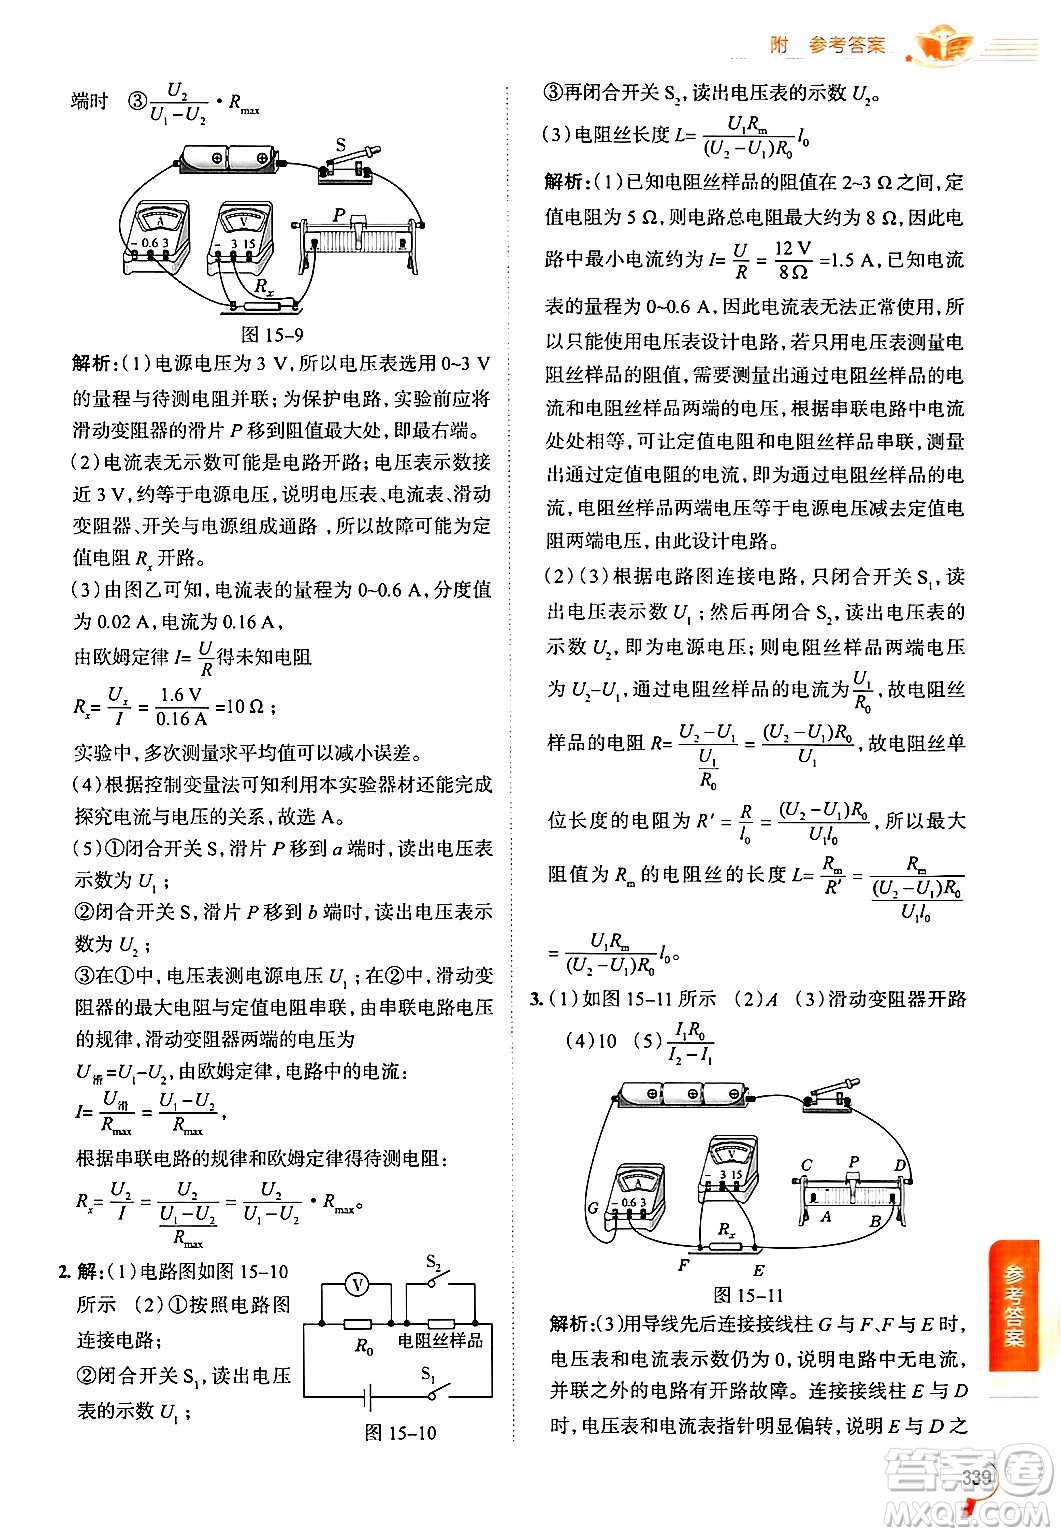 附 参考答案
端时 ③U₂/(U₁-U₂)·Rmax
S
A
V
P
- 0.6 3
- 3 15
Rₓ
图 15-9
解析:(1)电源电压为 3 V,所以电压表选用 0~3 V
的量程与待测电阻并联;为保护电路,实验前应将
滑动变阻器的滑片 P 移到阻值最大处,即最右端。
(2)电流表无示数可能是电路开路;电压表示数接
近 3 V,约等于电源电压,说明电压表、电流表、滑动
变阻器、开关与电源组成通路,所以故障可能为定
值电阻 Rₓ 开路。
(3)由图乙可知,电流表的量程为 0~0.6 A,分度值
为 0.02 A,电流为 0.16 A,
由欧姆定律 I=U/R得未知电阻
Rₓ=Uₓ/I=1.6 V/0.16 A=10 Ω;
实验中,多次测量求平均值可以减小误差。
(4)根据控制变量法可知利用本实验器材还能完成
探究电流与电压的关系,故选 A。
(5)①闭合开关 S,滑片 P 移到 a 端时,读出电压表
示数为 U₁;
②闭合开关 S,滑片 P 移到 b 端时,读出电压表示
数为 U₂;
③在①中,电压表测电源电压 U₁;在②中,滑动变
阻器的最大电阻与定值电阻串联,由串联电路电压
的规律,滑动变阻器两端的电压为
U滑=U₁-U₂,由欧姆定律,电路中的电流:
I=U滑/Rmax=(U₁-U₂)/Rmax,
根据串联电路的规律和欧姆定律得待测电阻:
Rₓ=U₂/I=U₂/((U₁-U₂)/Rmax)=U₂/(U₁-U₂)·Rmax。
2. 解:(1)电路图如图 15-10
所示 (2)①按照电路图
连接电路;
②闭合开关 S₁,读出电压
表的示数 U₁;
V
S₂
R₀
电阻丝样品
S₁
图 15-10
③再闭合开关 S₂,读出电压表的示数 U₂。
(3)电阻丝长度 L=U₁Rm/((U₂-U₁)R₀)l₀
解析:(1)已知电阻丝样品的阻值在 2~3 Ω 之间,定
值电阻为 5 Ω,则电路总电阻最大约为 8 Ω,因此电
路中最小电流约为 I=U/R=12 V/8 Ω=1.5 A,已知电流
表的量程为 0~0.6 A,因此电流表无法正常使用,所
以只能使用电压表设计电路,若只用电压表测量电
阻丝样品的阻值,需要测量出通过电阻丝样品的电
流和电阻丝样品两端的电压,根据串联电路中电流
处处相等,可让定值电阻和电阻丝样品串联,测量
出通过定值电阻的电流,即为通过电阻丝样品的电
流,电阻丝样品两端电压等于电源电压减去定值电
阻两端电压,由此设计电路。
(2)(3)根据电路图连接电路,只闭合开关 S₁,读
出电压表示数 U₁;然后再闭合 S₂,读出电压表的
示数 U₂,即为电源电压;电阻丝样品两端电压
为 U₂-U₁,通过电阻丝样品的电流为U₁/R₀,故电阻丝
样品的电阻 R=(U₂-U₁)/(U₁/R₀)=(U₂-U₁)R₀/U₁,故电阻丝单
位长度的电阻为 R′=R/l₀=(U₂-U₁)R₀/(U₁l₀),所以最大
阻值为 Rm 的电阻丝的长度 L=Rm/R′=Rm/((U₂-U₁)R₀/(U₁l₀))
=U₁Rm/((U₂-U₁)R₀)l₀。
3. (1)如图 15-11 所示 (2)A (3)滑动变阻器开路
(4)10 (5)I₁R₀/(I₂-I₁)
V
- 3 15
A
- 0.6 3
C P D
A B
G
Rₓ
F
E
图 15-11
解析:(3)用导线先后连接接线柱 G 与 F、F 与 E 时,
电压表和电流表示数仍为 0,说明电路中无电流,
并联之外的电路有开路故障。连接接线柱 E 与 D
时,电压表和电流表指针明显偏转,说明 E 与 D 之
参考答案
339
答案卷
MXQE.COM